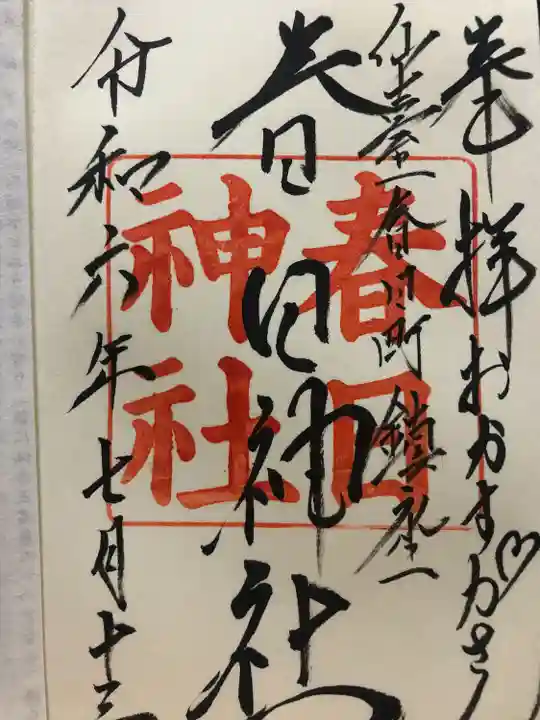 奉拝おかすがさ
仙臺春日町鎮座
春日神社
令和六年七月十三
春日
神社